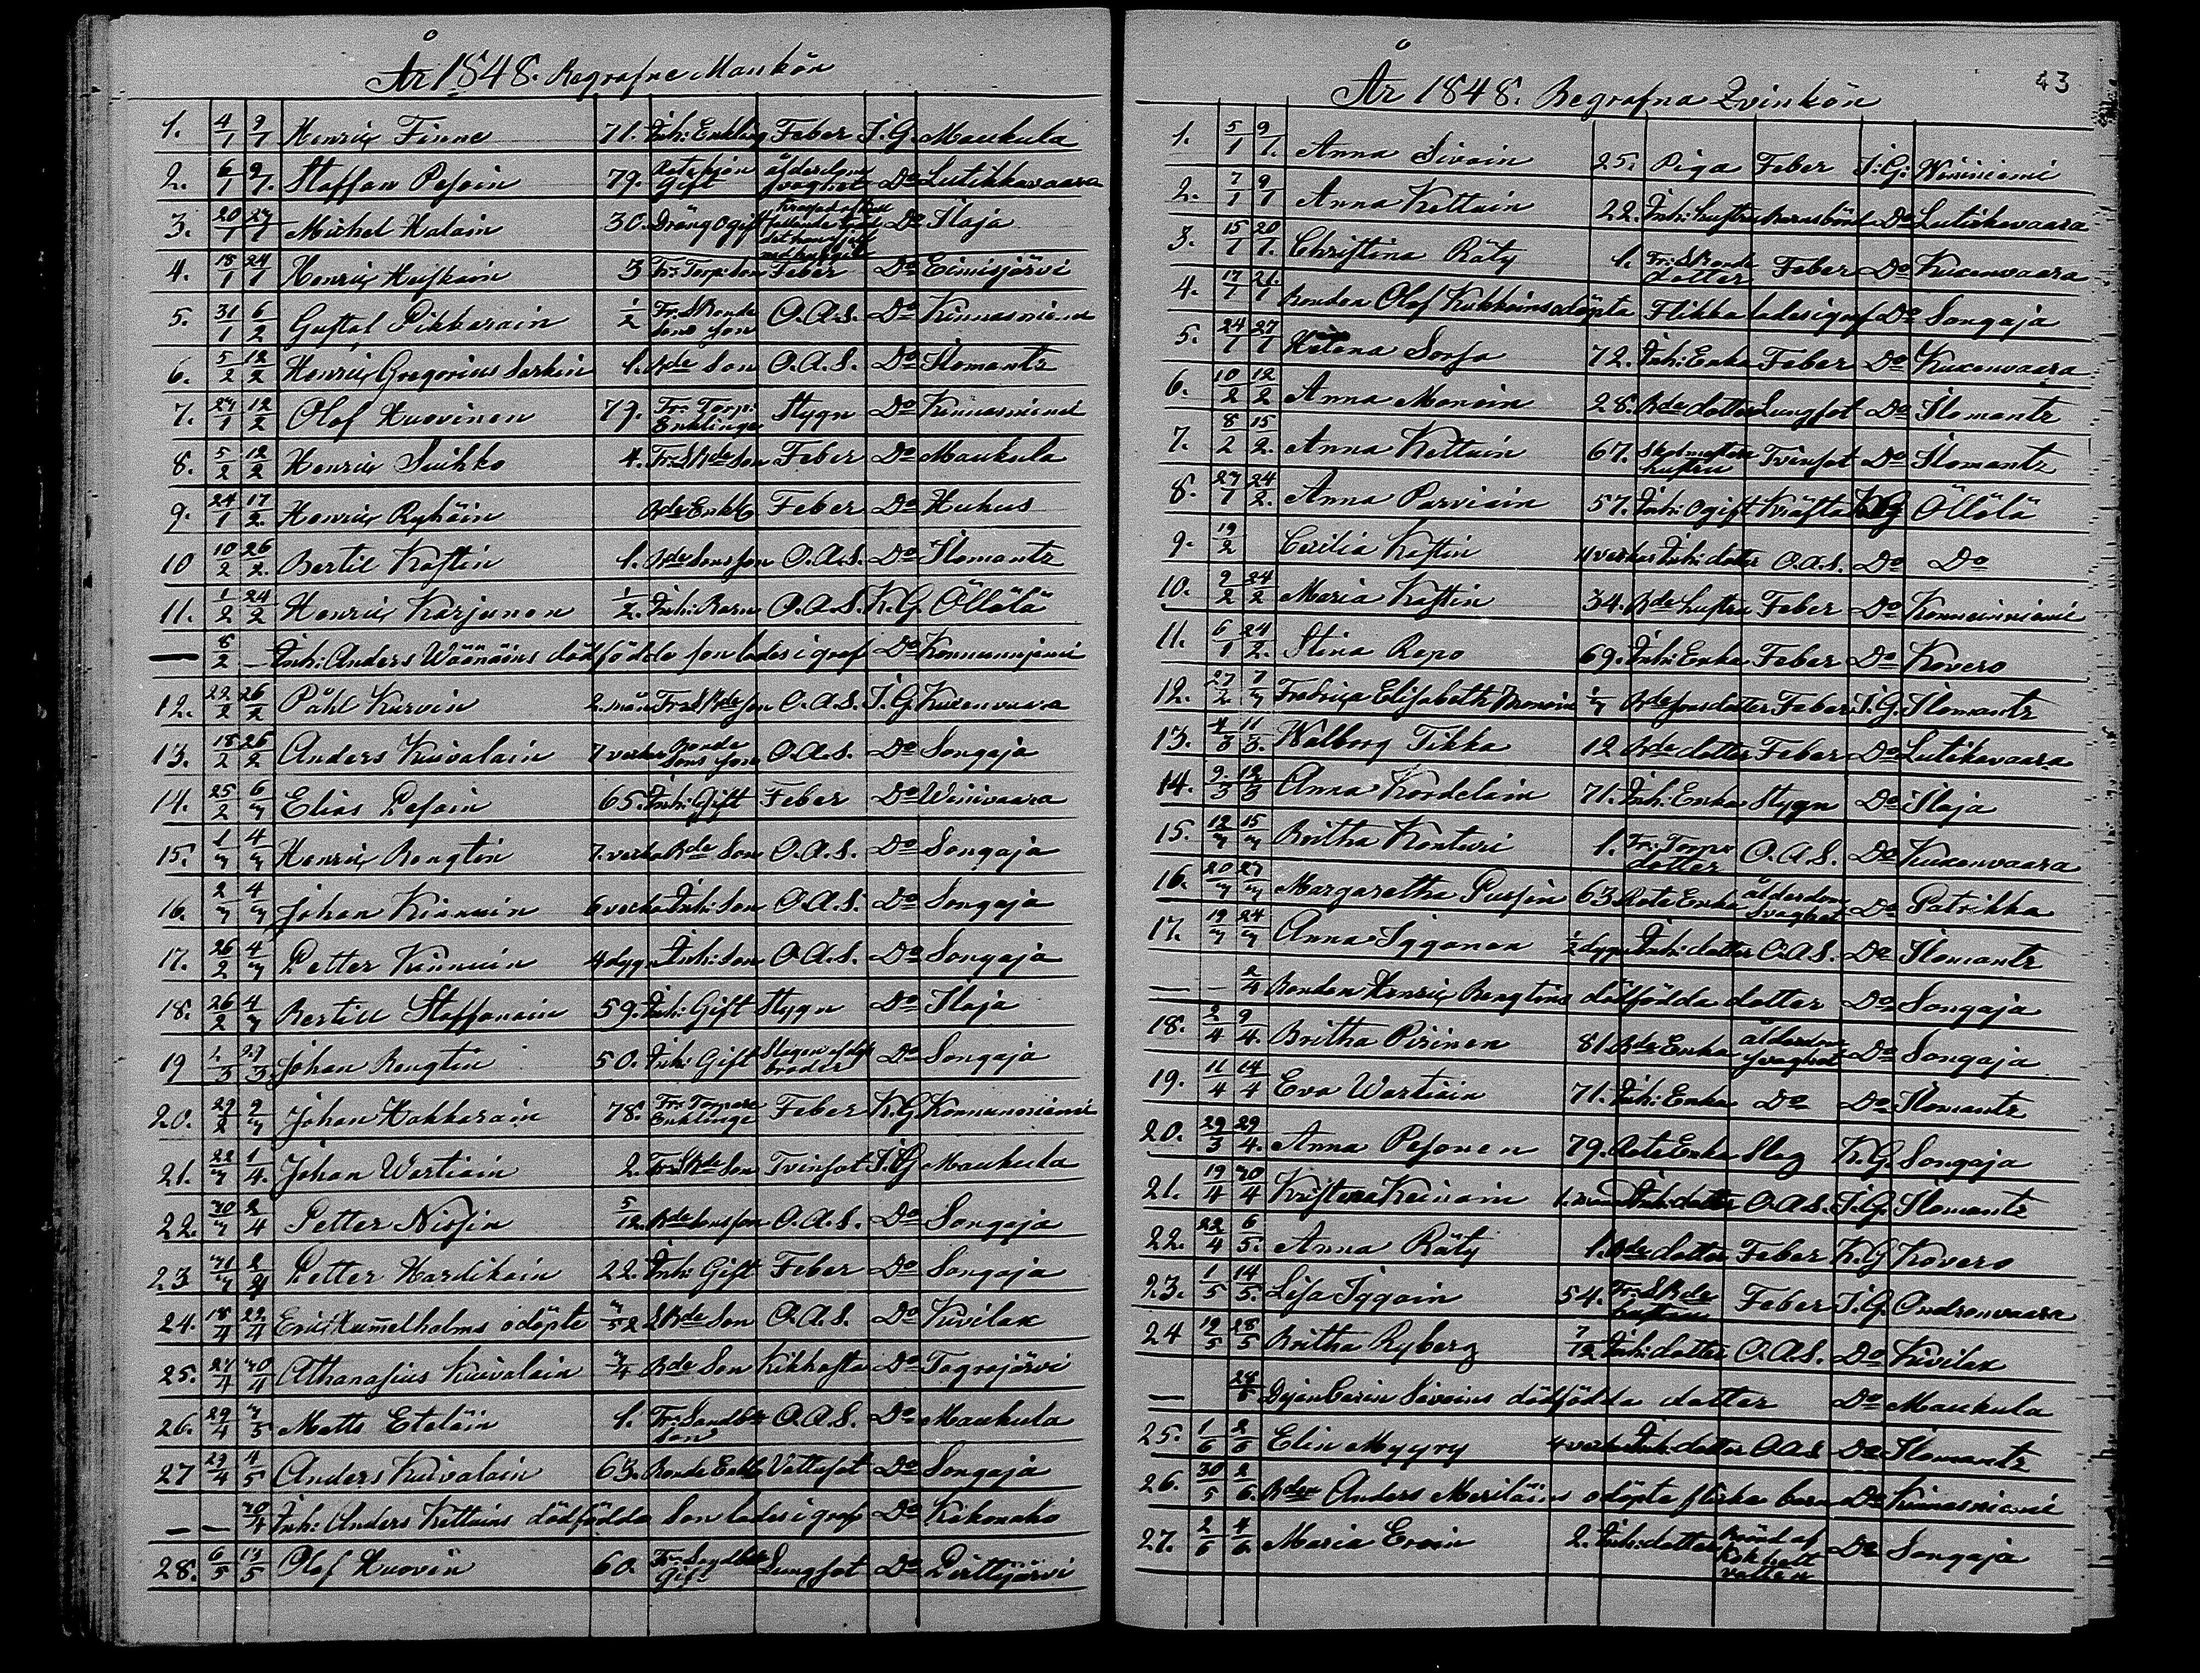 År 1848. Begrafne Mankön
1. 4/1 9/1 Henric Finne 71. Inh: Enkling Feber I.G Maukula
2. 6/1 9/1. Staffan Pesoin 79. Gift ålderdoms svaghet Do Lutikkavaara
3. 20/1 27/1 Michel Halain 30. Dräng ogift Do Ilaja
4. 18/1 24/1 Henric Huiskain 3 Fr: Torp: Son Feber Do Eimisjärvi
5. 31/1 6/2 Gustaf Pikkarain 1/2 Fr: SBonde sons son O.A.S. Do Kinnasniemi
6. 5/2 12/2 Henric Gregorius Sarkin 1. Bde Son O.A.S. Do Ilomantz
7. 27/1 12/2 Olof Huovinen 79. Fr: Torp: Enklinge Stygn Do Kinnasniemi
8. 5/2 12/2 Henric Suihko 4. Fr: SBde Son Feber Do Maukula
9. 24/1 17/2. Henric Ryhäin Bde Enkl Feber Do Huhus
10 10/2 26/2. Bertil Kastin 1. Bde Sons son O.A.S. Do Ilomantz
11. 1/2 24/2 Henric Karjunen 1/2. Inh: Barn O.A.S. K.G Öllölä
— 8/2 — Inh: Anders Wäänäins dödfödde son lades i graf Do Konnunniemi
12. 22/2 26/2 Påhl Kurvin 2. mån Fr: SBde Son O.A.S. I.G Kuxenvaara
13. 18/2 26/2 Anders Kuivalain 7 veckor Bonde Sons son O.A.S. Do Songaja
14. 25/2 6/3 Elias Pesoin 65. Inh: Gift Feber Do Wiisivaara
15. 1/3 4/3 Henric Bengtin 7. vecka Bde Son O.A.S. Do Songaja
16. 2/3 4/3 Johan Kinnuin 6 vecka Inh: Son O.A.S. Do Songaja
17. 26/2 4/3 Petter Kinnuin 4 dygn Inh: Son O.A.S. Do Songaja
18. 26/2 4/3 Bertill Staffanain 59. Inh: Gift Stygn Do Ilaja
19 1./3 27/3. Johan Bengtin 50. Inh: Gift Slagen af des broder Do Songaja
20. 29/2 9/3 Johan Hakkarain 78. Fr: Torpare Enklinge Feber K.G Konnunniemi
21. 22/3 1/4. Johan Wartiain 2. Fr: SBde Son Tvinsot I.G Maukula
22. 30/3 2/4 Petter Nissin 5/12. Bde Sons son O.A.S. Do Songaja
23 31/3 2/4 Petter Hardikain 22. Inh: Gift Feber Do Songaja
24. 18/4 22/4 Eric Hummelholms odöpte 3/52 SBde Son O.A.S. Do Kivilax
25. 27/4 30/4 Athanasius Kuivalain 3/4 Bde Son Kikhosta Do Tograjärvi
26. 29/4 3/5 Matts Eteläin 1. Fr: Landb: son O.A.S. Do Maukula
27 29/4 4/5 Anders Kuivalain 63. Bonde Enkl Vattusot Do Songaja
— — 30/4 Inh: Anders Kettuins dödfödda Son lades i graf Do Kakonaho
28. 6/5 13/5 Olof Huovin 60. Gift Lungsot Do Pirttijärvi
År 1848. Begrafna Qvinkön 43
1. 5/1 9/1. Anna Sivoin 25. Piga Feber I:G: Niiniemi
2. 7/1 9/1 Anna Kettuin 22. Inh: hustru Barnsbörd Do Lutikkavaara
3. 15/1 20/1. Christina Räty 1. Fr: SBonde dotter Feber Do Kuxenvaara
4. 17/1 21./1 Bonden Olof Kukkoins odöpta Flikka lades i graf Do Songaja
5. 24/1 27/1 Helena Sorsa 72. Inh: Enka Feber Do Kuxenvaara
6. 10/2 12/2 Anna Monoin 28. Bde dotter Lungsot Do Ilomantz
7. 8/2 15/2. Anna Kettuin 67. Skolmästare hustru Tvinsot Do Ilomantz
8. 27/1 24/2. Anna Parviain 57. Inh: ogift Kräfta K.G Öllölä
9. 19/2 Cecilia Kastin 11 veckor Inh: dotter O.A.S. Do Do
10. 9/2 24/2 Maria Kastin 34. Bde hustru Feber Do Konnunniemi
11. 6/1 24/2. Stina Repo 69. Inh: Enka Feber Do Kovero
12. 27/2 7/3 Fredrica Elisabeth Monoin 1/3 Bde sonsdotter Feber I.G. Ilomantz
13. 4/3 11/3. Walborg Tikka 12 Bde dotter Feber Do Lutikavaara
14. 9/3 12/3 Anna Kordelain 71. Inh: Enka Stygn Do Ilaja
15. 12/3 15/3 Britha Konturi 1. Fr: Torpe dotter O.A.S. Do Kuxenvaara
16. 20/3 27/3 Margaretha Pussin 63 Rote Enka ålderdoms Svaghet Do Patrikka
17. 19/3 24/3 Anna Iggonen 1/2 dygn Inh: dotter O.A.S. Do Ilomantz
— — 2/4 Bonden Henric Bengtins dödfödda dotter Do Songaja
18. 2/4 9/4. Britha Pirinen 81. Bde Enka ålderdoms svaghet Do Songaja
19. 11/4 14/4 Eva Wartiain 71. Inh: Enka Do Do Ilomantz
20. 29/3 29/4. Anna Pesonen 79. Rote Enka Slag K.G. Songaja
21. 19/4 30/4 Inh: dotter O.A.S. I.G. Ilomantz
22. 22/4 6/5. Anna Räty 1. Bde dotter Feber K.G Kovero
23. 1/5 14/5. Lisa Iggoin 54. Fr: SBde hustru Feber I.G. Andronvaara
24 19/5 28/5 Britha Ryberg 7/12 Inh: dotter O.A.S. Do Kivilax
— 28/5 Pigan Carin Sivoins dödfödda dotter Do Maukula
25. 1/6 2/6 Elin Myyry 4 vecka Inh: dotter O.A.S Do Ilomantz
26. 30/5 2/6. Bden Anders Meriläins odöpta flicka barn Do Kinnasniemi
27. 2/6 4/6. Maria Eroin 2. Inh: dotter Bränd af kokhett vatten Do Songaja